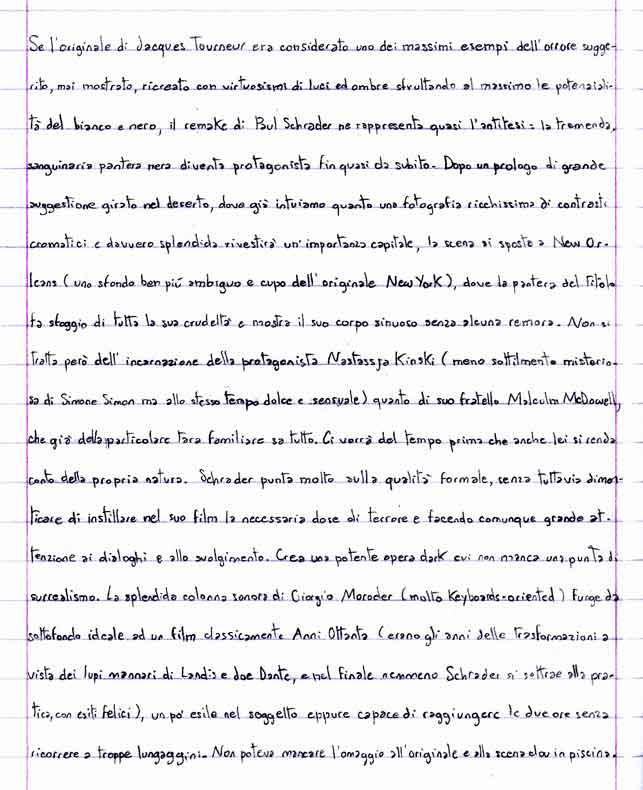 Se l'originale di Jacques Tourneur era considerato uno dei massimi esempi dell'orrore sugge-
rito, mai mostrato, ricreato con virtuosismi di luci ed ombre sfruttando al massimo le potenziali-
tà del bianco e nero, il remake di Paul Schrader ne rappresenta quasi l'antitesi: la tremenda,
sanguinaria pantera nera diventa protagonista fin quasi da subito. Dopo un prologo di grande
suggestione girato nel deserto, dove già intuiamo quanto una fotografia ricchissima di contrasti
cromatici e davvero splendida rivestirà un'importanza capitale, la scena si sposta a New Or-
leans (uno sfondo ben più ambiguo e cupo dell'originale New York), dove la pantera del titolo
fa sfoggio di tutta la sua crudeltà e mostra il suo corpo sinuoso senza alcuna remora. Non si
tratta però dell'incarnazione della protagonista Nastassja Kinski (meno sottilmente misterio-
sa di Simone Simon ma allo stesso tempo dolce e sensuale) quanto di suo fratello Malcolm McDowell,
che già della particolare tara familiare sa tutto. Ci vorrà del tempo prima che anche lei si renda
conto della propria natura. Schrader punta molto sulla qualità formale, senza tuttavia dimen-
ticare di instillare nel suo film la necessaria dose di terrore e facendo comunque grande at-
tenzione ai dialoghi e allo svolgimento. Crea una potente opera dark cui non manca una punta di
surrealismo. La splendida colonna sonora di Giorgio Moroder (molto Keyboards-oriented) funge da
sottofondo ideale ad un film classicamente Anni Ottanta (erano gli anni delle trasformazioni a
vista dei lupi mannari di Landis e Joe Dante, e nel finale nemmeno Schrader si sottrae alla pra-
tica, con esiti felici), un po' esile nel soggetto eppure capace di raggiungere le due ore senza
ricorrere a troppe lungaggini. Non poteva mancare l'omaggio all'originale e alla scena clou in piscina.